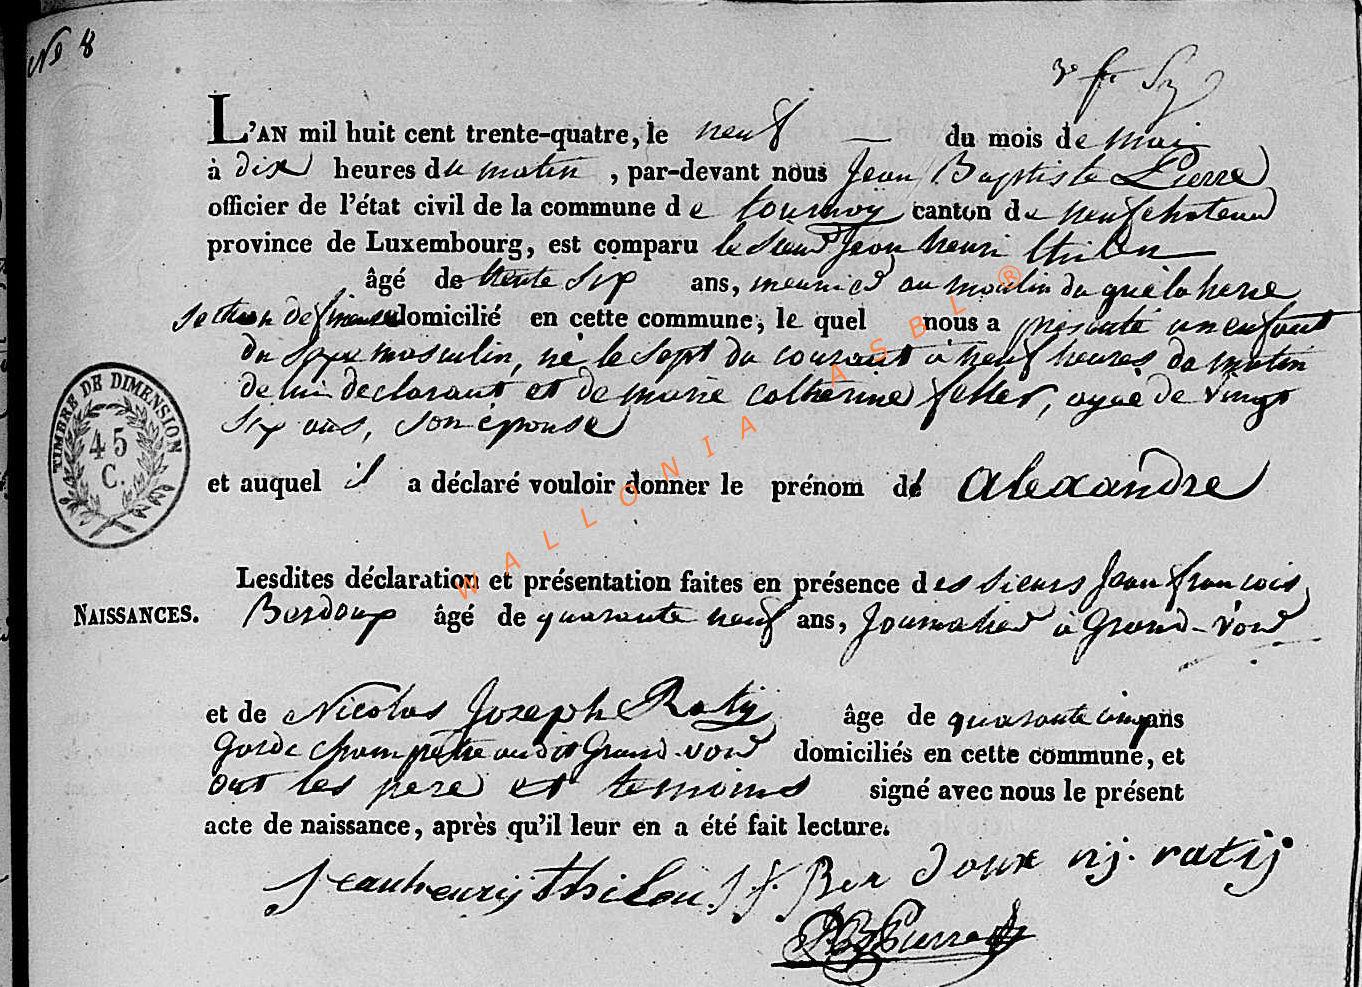 No 8
L'AN mil huit cent trente-quatre, le neuf du mois de mai
à dix heures du matin, par-devant nous Jean Baptiste Pierre
officier de l'état civil de la commune de tournay canton de neufchateau
province de Luxembourg, est comparu le Sieur Jean henri thilen
âgé de trente six ans, meunier au moulin de
Section de domicilié en cette commune, le quel nous a présenté un enfant
du sexe masculin, né le sept du courant à neuf heures du matin
de lui declarant et de marie catherine feller, agée de vingt
six ans, son épouse
et auquel il a déclaré vouloir donner le prénom de alexandre
Lesdites déclaration et présentation faites en présence des sieurs Jean françois
NAISSANCES. Berdoux âgé de quarante neuf ans, Journalier à Grand-voir
et de Nicolas Joseph Ratij âge de quarante cinq ans
Garde champetre audit Grand-voir domiciliés en cette commune, et
ont les pere et temoins signé avec nous le présent
acte de naissance, après qu'il leur en a été fait lecture.
Jean henrij thilen J f Ber doux nj. ratij
JB Pierre
TIMBRE DE DIMENSION
45
C.
WALLONIA ASBL ®